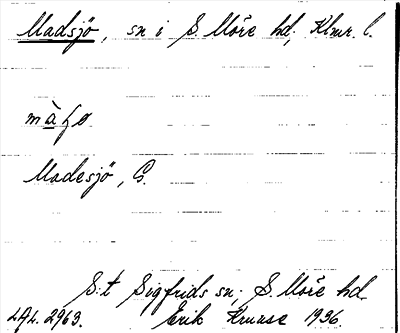 Madsjö, sn i S. Möre hd, Klmr. l.
màʃø
Madesjö, G.
S:t Sigfrids sn; S. Möre hd
LAL. 2963. Erik Kruuse 1936.